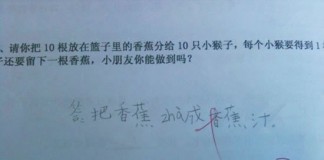 、请你把 10 根放在篮子里的香蕉分给 10 只小猴子，每个小猴要得到 1
子还要留下一根香蕉，小朋友你能做到吗？
答：把香蕉zha成香蕉汁。